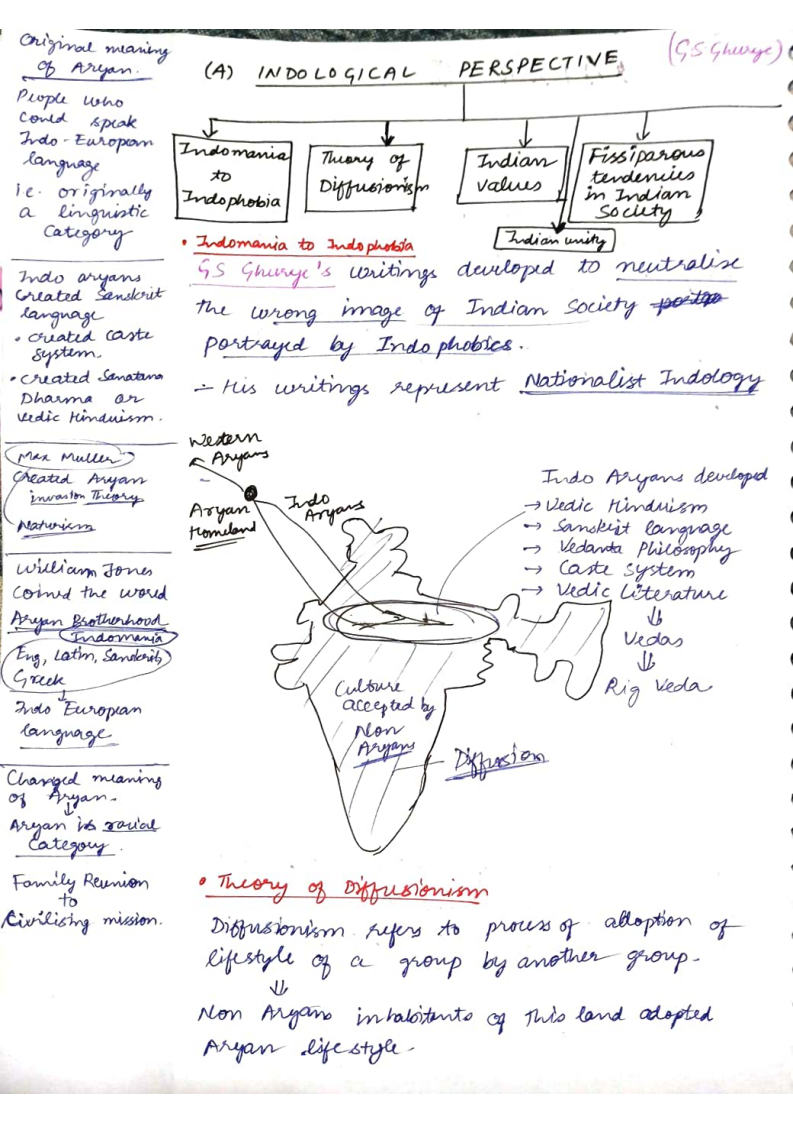 Original meaning
of Aryan.
People who
could speak
Indo-European
language
ie. originally
a linguistic
category
Indo aryans
created Sanskrit
language
• created caste
system.
• created Sanatana
Dharma or
Vedic Hinduism.
Max Muller
Created Aryan
invasion Theory
Naturism
William Jones
Coined the word
Aryan Brotherhood
Indomania
Eng, Latin, Sanskrit,
Greek
↓
Indo European
language
Changed meaning
of Aryan.
↓
Aryan is racial
Category.
Family Reunion
to
Civilising mission.
(GS Ghurye)
(A) INDOLOGICAL PERSPECTIVE
Indomania
to
Indophobia
Theory of
Diffusionism
Indian
values
Fissiparous
tendencies
in Indian
Society
Indian unity
• Indomania to Indophobia
GS Ghurye's writings developed to neutralise
the wrong image of Indian Society
portrayed by Indophobics.
– His writings represent Nationalist Indology
Western
Aryans
Aryan
Homeland
Indo
Aryans
Indo Aryans developed
→ Vedic Hinduism
→ Sanskrit language
→ Vedanta Philosophy
→ Caste System
→ Vedic Literature
⇓
Vedas
⇓
Rig Veda
Culture
accepted by
Non
Aryans
Diffusion
• Theory of Diffusionism
Diffusionism refers to process of adoption of
lifestyle of a group by another group.
⇓
Non Aryans inhabitants of this land adopted
Aryan lifestyle.